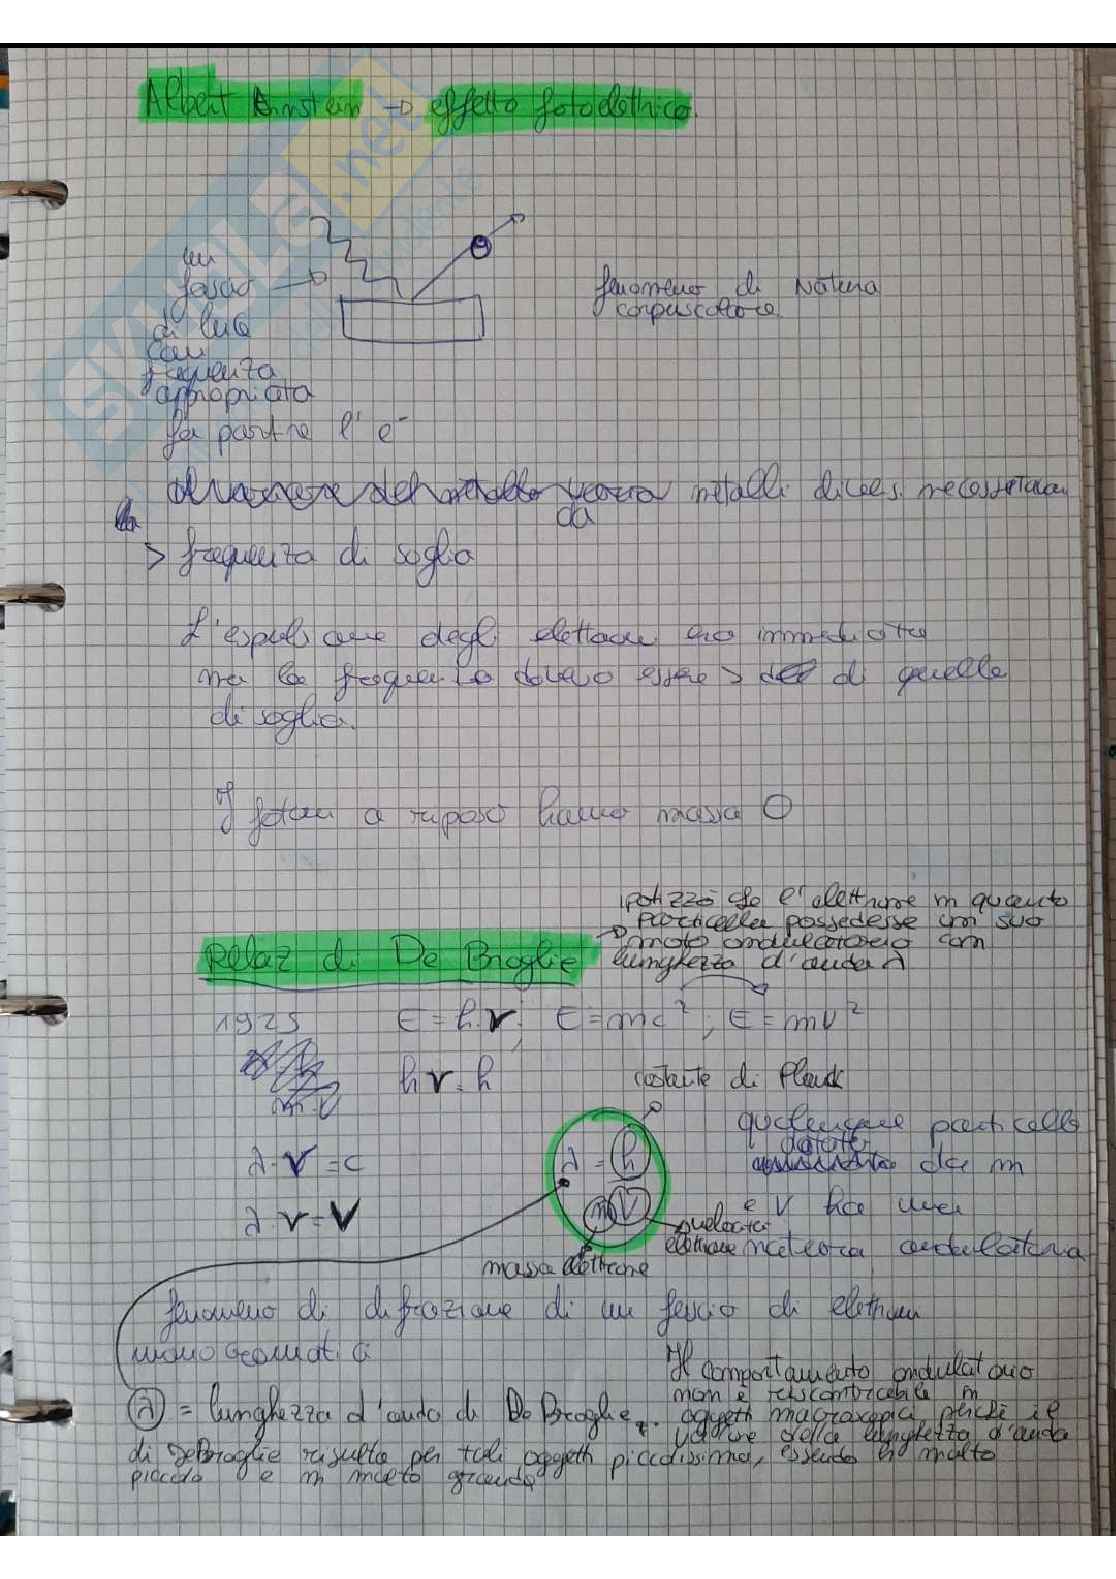 Albert Einstein → effetto fotoelettrico.
un
fascio
di luce
con
frequenza
appropriata
fa partire l'e⁻
fenomeno di natura
corpuscolare
metalli diversi necessitano
da
> frequenza di soglia
L'espulsione degli elettroni era immediata
ma la frequenza doveva essere > di quella
di soglia.
I fotoni a riposo hanno massa 0
ipotizzò che l'elettrone in quanto
particella possedesse un suo
moto ondulatorio con
lunghezza d'onda λ
Relaz di De Broglie
1925 E = h·ν; E = mc²; E = mv²
hν = h
costante di Planck
λ·ν = c
λ·ν = V
λ = h
mV
qualunque particella
dotata
da m
e V ha una
natura ondulatoria
velocità
elettrone
massa elettrone
fenomeno di difrazione di un fascio di elettroni
monocromatici
λ = lunghezza d'onda di De Broglie
Il comportamento ondulatorio
non è riscontrabile in
oggetti macroscopici perché il
valore della lunghezza d'onda
di De Broglie risulta per tali oggetti piccolissima, essendo h molto
piccola e m molto grande
SKUOLA.net